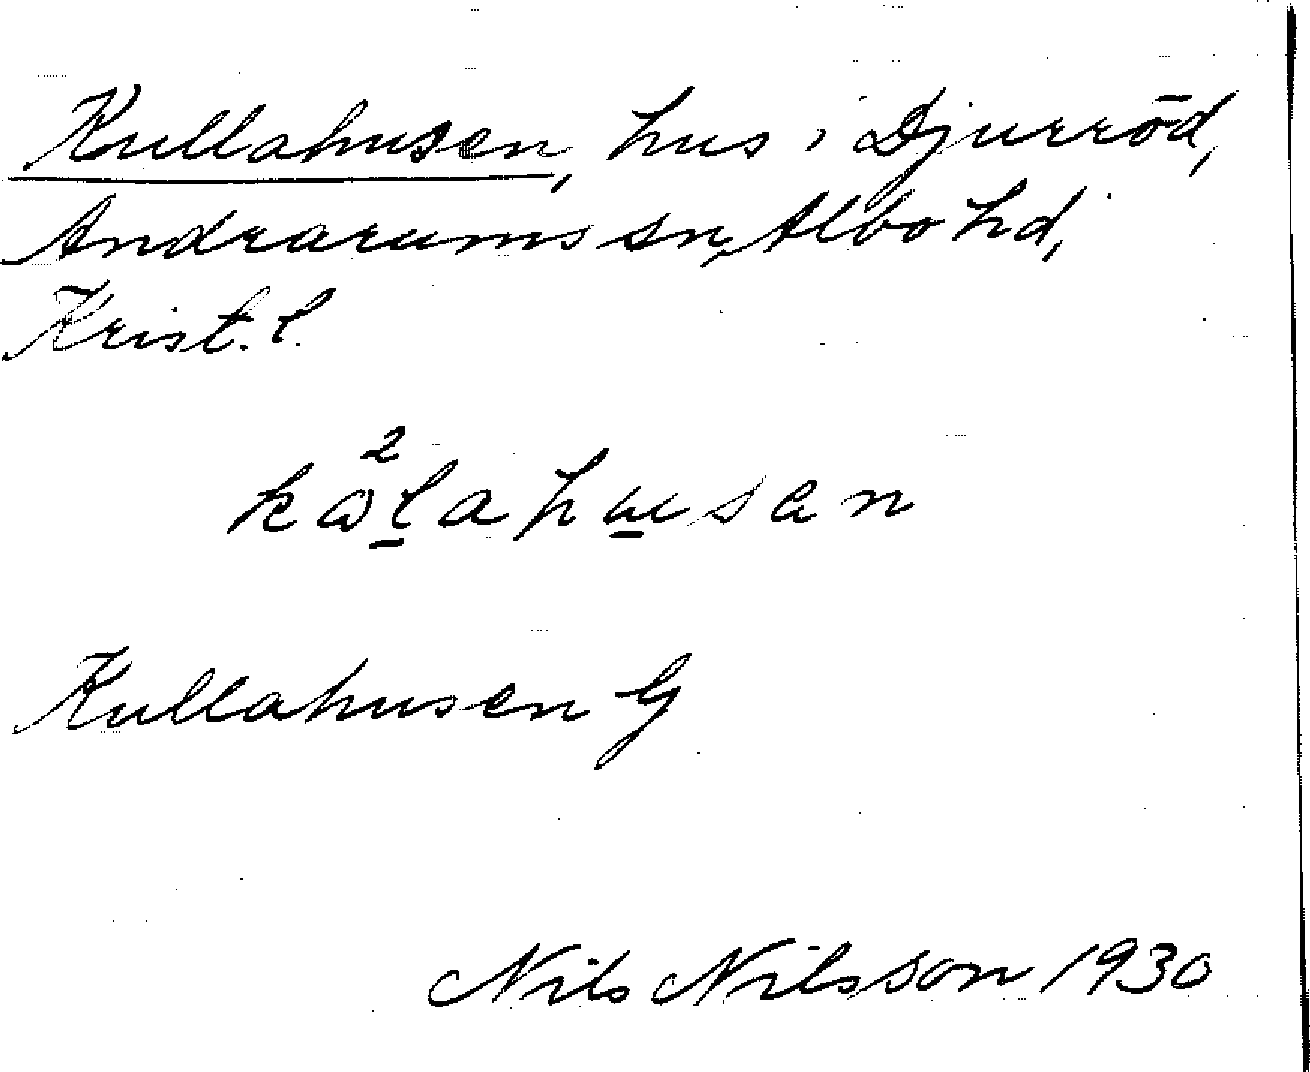 Kullahusen, hus i Djurröd,
Andrarums sn, Albo hd,
Krist. l.
2
kωl̲ahu̲san
Kullahusen G
Nils Nilsson 1930